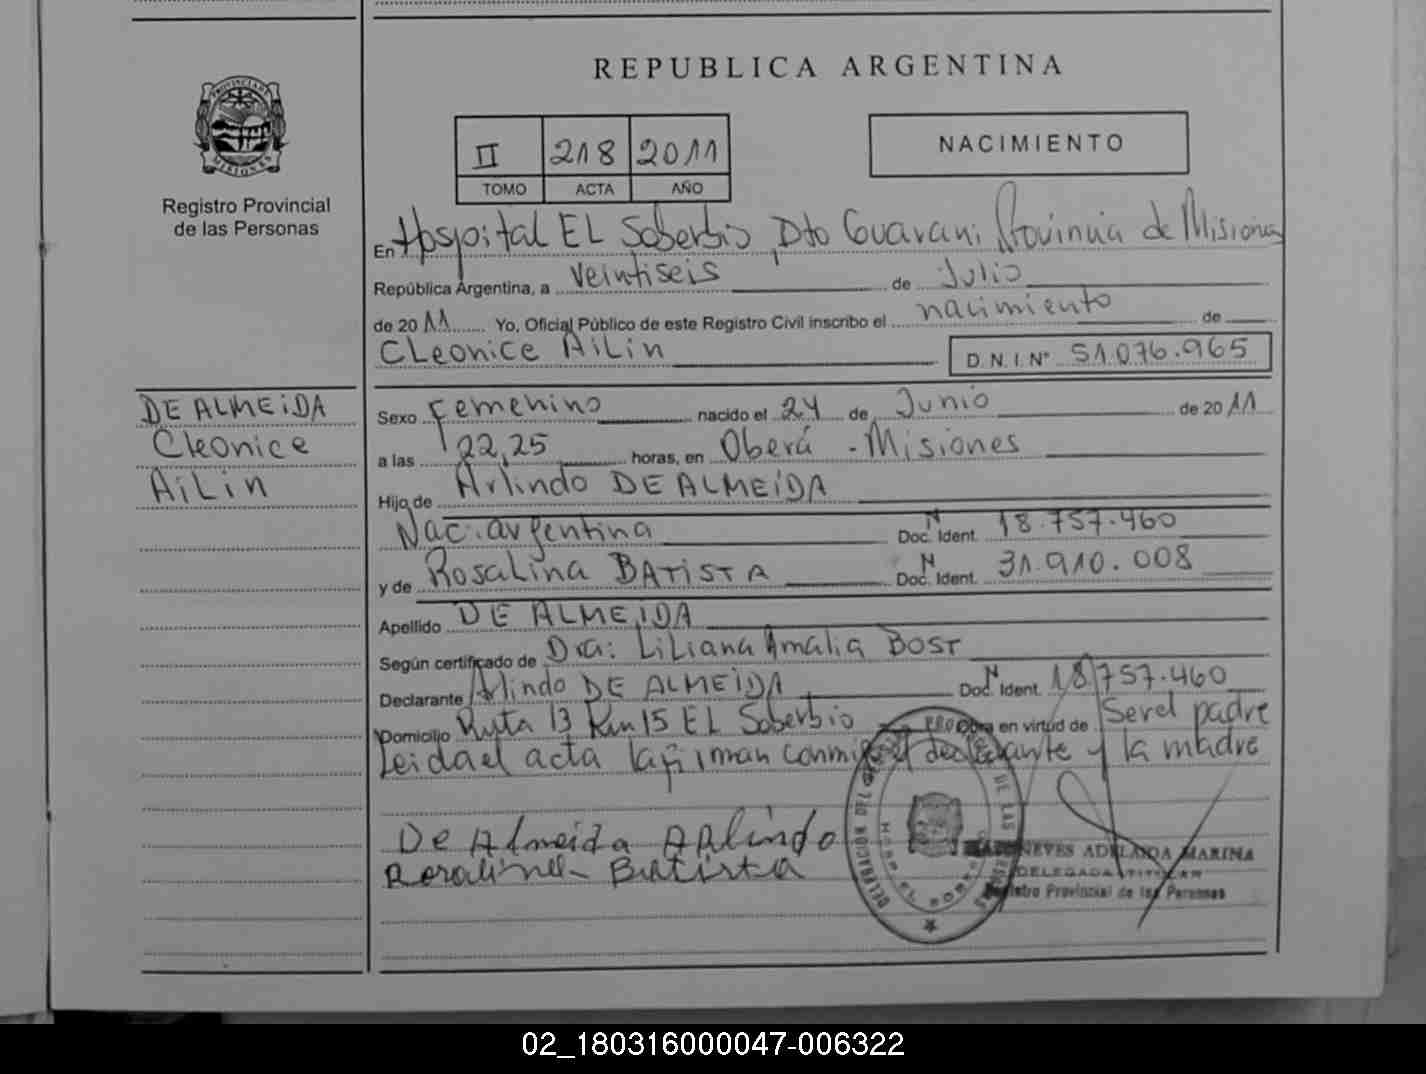 REPUBLICA ARGENTINA
PROVINCIA DE
MISIONES
Registro Provincial
de las Personas
II 218 2011
TOMO ACTA AÑO
NACIMIENTO
En Hospital EL Soberbio, Dto Guarani Provincia de Misiones
República Argentina, a veintiseis de Julio
de 2011 Yo, Oficial Público de este Registro Civil inscribo el nacimiento de
CLeonice AiLin D.N.I.Nº 51.076.965
DE ALMEiDA
Cleonice
AiLin
Sexo Femenino nacido el 24 de Junio de 2011
a las 22,25 horas, en Oberá - Misiones
Hijo de Arlindo DE ALMEiDA
Nac. argentina Doc. Ident. N 18.757.460
y de RosaLina BATiSTA Doc. Ident. N 31.910.008
Apellido DE ALMEiDA
Según certificado de Dra: LiLiana Amalia BOST
Declarante Arlindo DE ALMEiDA Doc. Ident. N 18.757.460
Domicilio Ruta 13 Km 15 EL Soberbio Obra en virtud de Ser el padre
Leida el acta la firman conmigo el declarante y la madre
De Almeida ARlindo
Rosalina Batista
NEVES ADELAIDA MARINA
DELEGADA TITULAR
Registro Provincial de las Personas
02_180316000047-006322